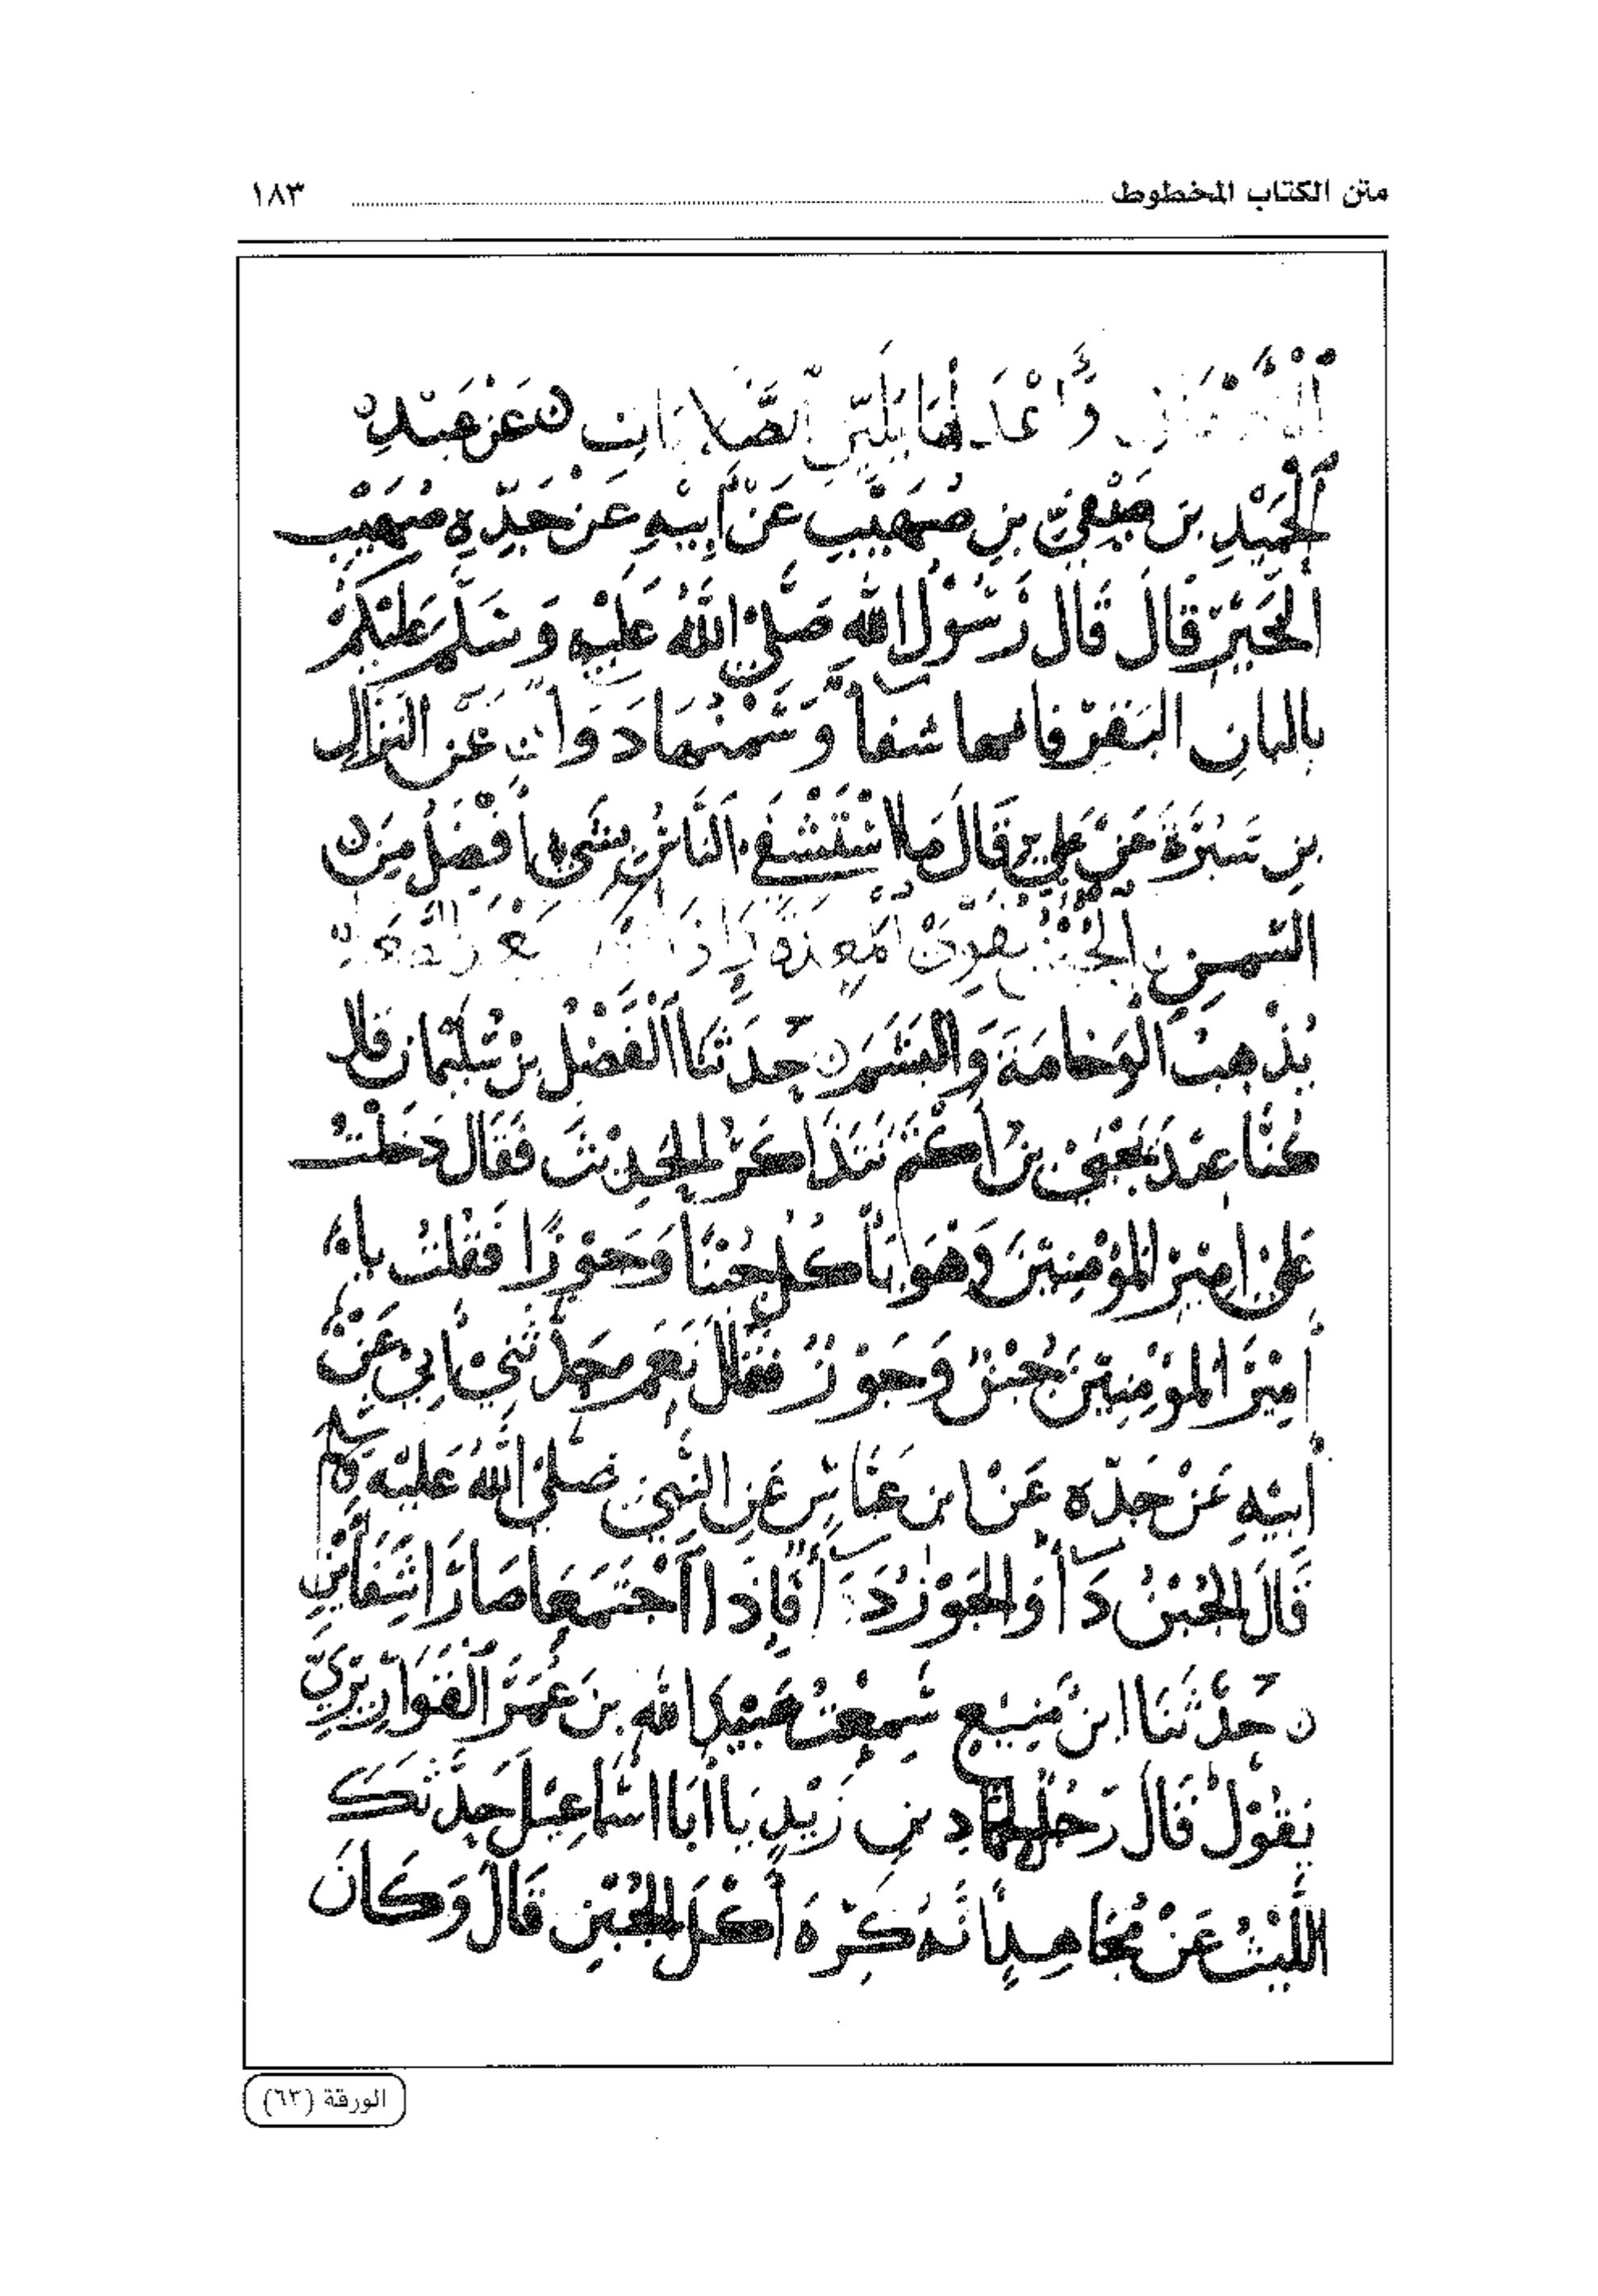 متن الكتاب المخطوط ١٨٣
يلين الصلابات ن عن عبد
الحميد بن صيفي بن صهيب عن أبيه عن جده صهيب
الخير قال قال رسول الله صلى الله عليه وسلم عليكم
بالبان البقر فانها شفا وسمنها دوا عن النزال
بن سبرة عن علي قال ما استشفى الناس بشيء أفضل من
السمن الجبن المعدة
يذهب الوخامة والبشم ن حدثنا الفضل بن سليمان قال
كنا عند يحيى بن أكثم نتذاكر الحديث فقال دخلت
على امير المؤمنين وهو يأكل جبنا وجوزا فقلت يا
أمير المؤمنين جبن وجوز فقال نعم حدثني أبي عن
أبيه عن جده عن ابن عباس عن النبي صلى الله عليه وسلم
قال الجبن دأ والجوز دأ فاذا اجتمعا صارا شفأين
ن حدثنا ابن منيع سمعت عبيد الله بن عمر القواريري
يقول قال رجل لحماد بن زيد يا أبا اسماعيل حدثك
الليث عن مجاهد أنه كره أكل الجبن قال وكان
الورقة (٦٢)